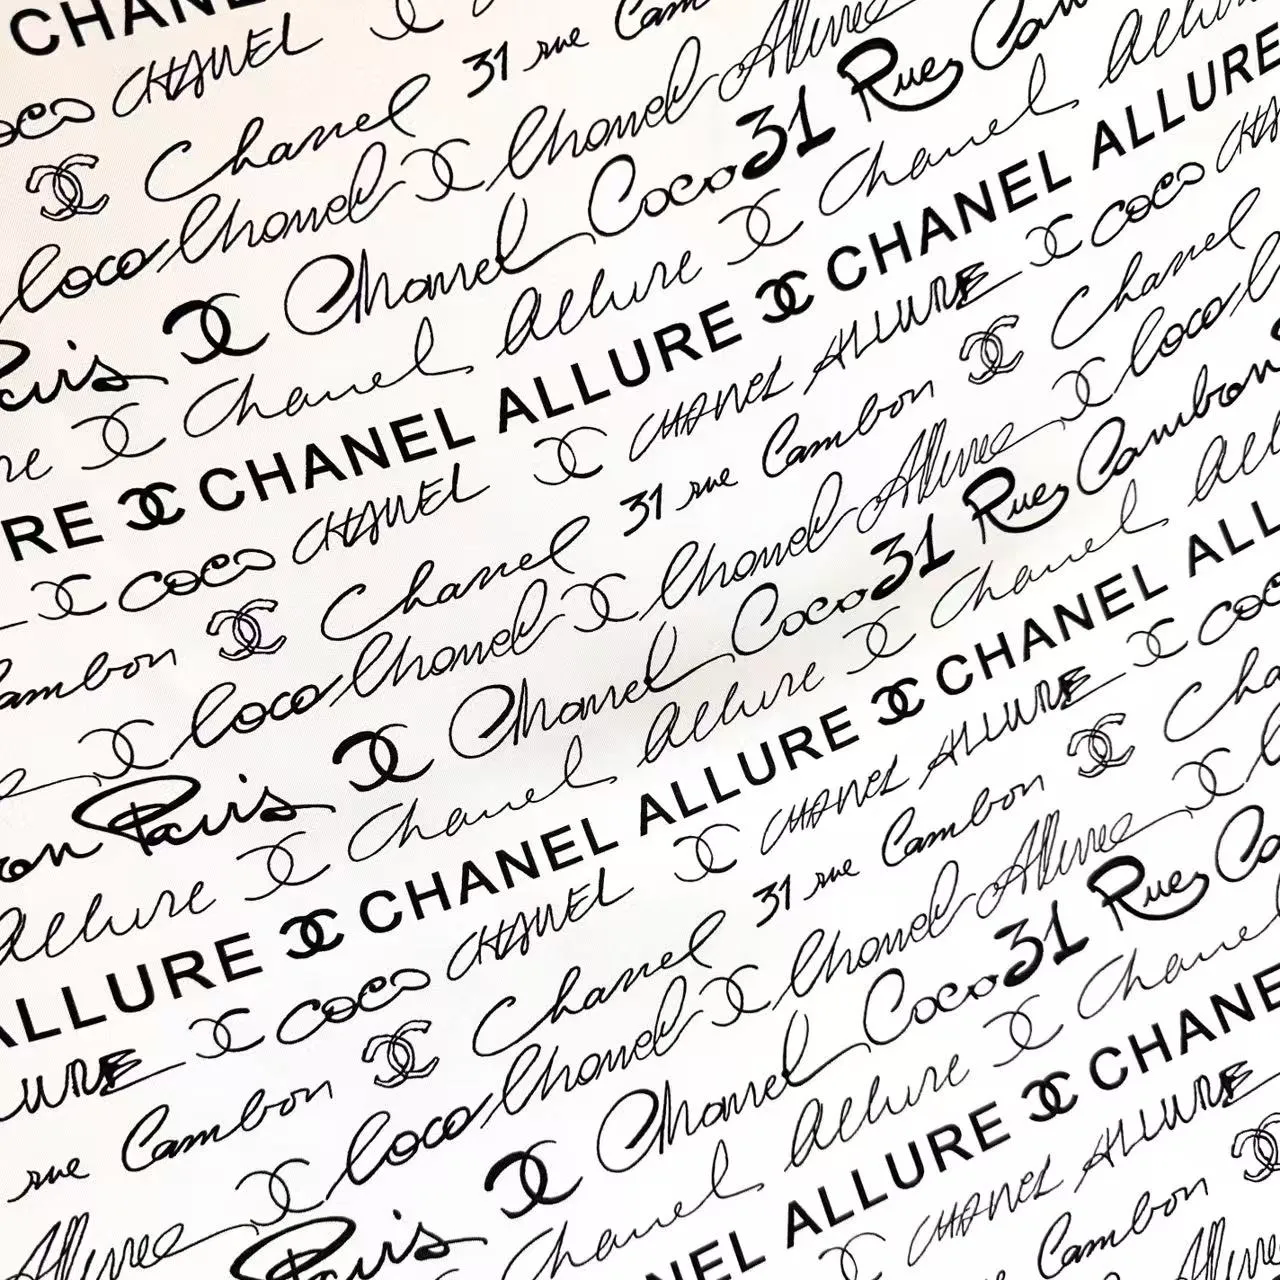 CHANEL
coco CHANEL
Chanel 31 rue Cam
Coco Chanel Chanel Allure
Paris Chanel Coco 31 Rue Cam
re Chanel Allure Chanel Allure
RE CHANEL ALLURE CHANEL ALLURE
coco CHANEL CHANEL ALLURE coco CHA
Cambon Chanel 31 rue Cambon Chanel
Coco Chanel Chanel Allure Coco
on Paris Chanel Coco 31 Rue Cambon
Allure Chanel Allure Chanel All
ALLURE CHANEL ALLURE CHANEL ALL
URE coco CHANEL CHANEL ALLURE coco
rue Cambon Chanel 31 rue Cambon Cha
Allure Coco Chanel Chanel Allure
Paris Chanel Coco 31 Rue Ca
Chanel Allure Chanel
NEL ALLURE CHANE
CHANEL ALLURE
Cambon
Allure